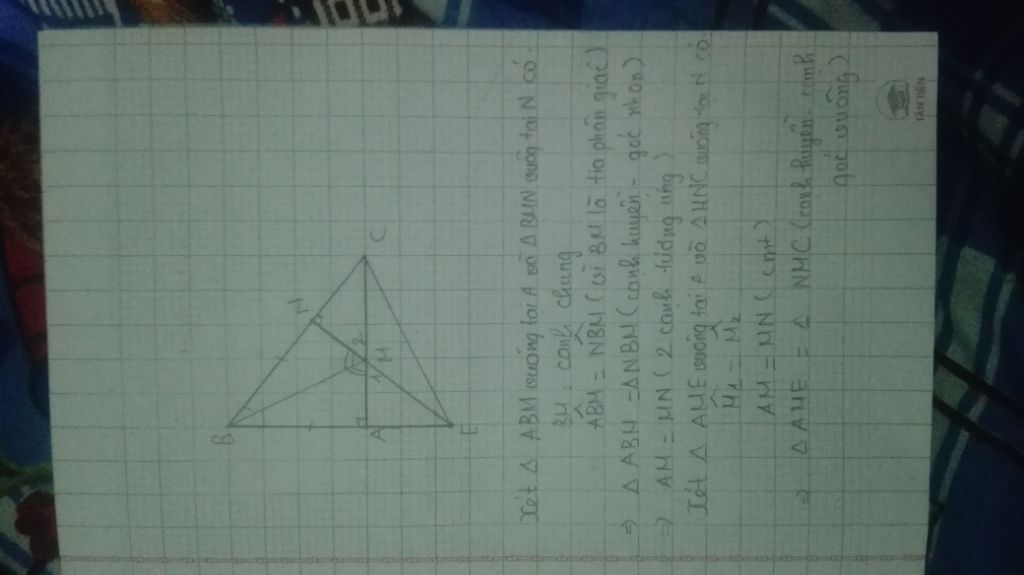 B
N
C
1
2
M
A
E
Xét Δ ABM vuông tại A và Δ BMN vuông tại N có.
BM : cạnh chung
ABM̂ = NBM̂ (vì BM là tia phân giác)
=> Δ ABM = ΔNBM (cạnh huyền - góc nhọn)
=> AM = MN (2 cạnh tương ứng)
Xét Δ AME vuông tại A và Δ MNC vuông tại N có.
M̂1 = M̂2
AM = MN (cmt)
=> Δ AME = Δ NMC (cạnh huyền - cạnh
góc vuông)
TÂN TIẾN